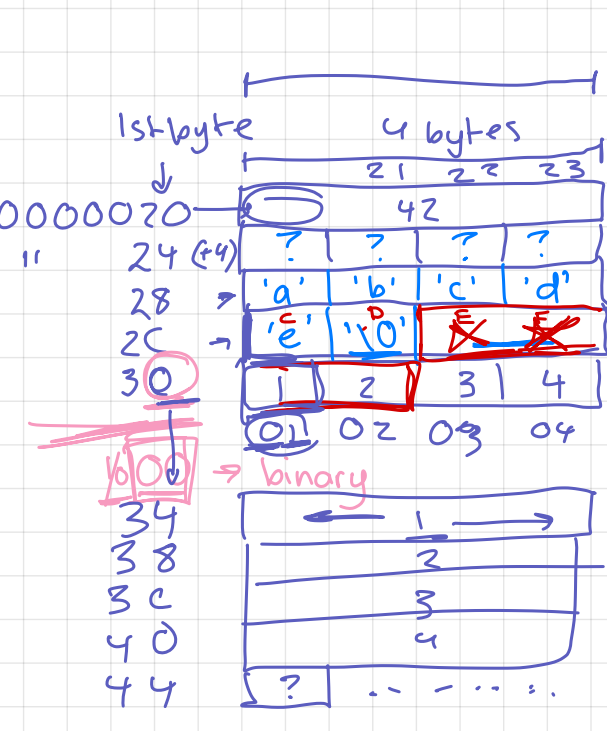 1st byte 4 bytes
21 22 23
0000020 42
" 24 (+4) ? ? ? ?
28 'a' 'b' 'c' 'd'
C D E E
2C 'e' '\0'
30 1 2 3 4
01 02 03 04
%00 → binary
34 1
38 2
3C 3
40 4
44 ? .. - - . . . .